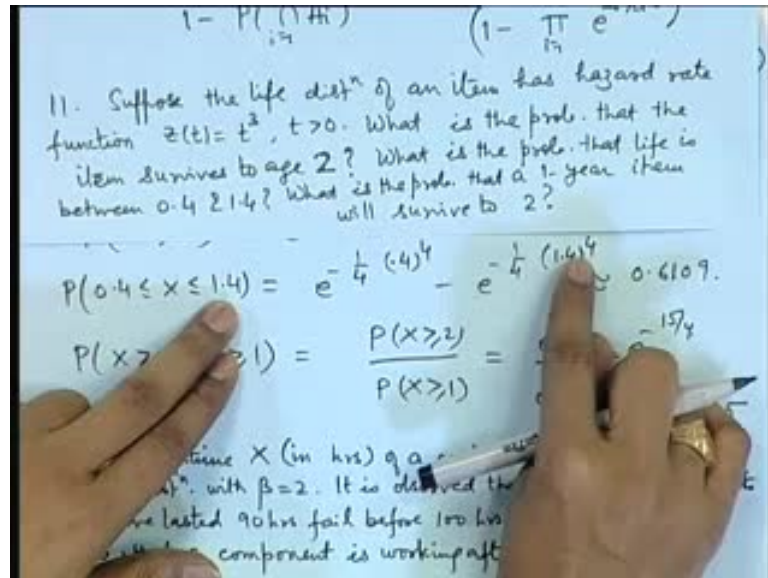 1 - P(∩ Hi)    (1 - π e
i=1    i=1
11. Suppose the life distⁿ of an item has hazard rate
function z(t) = t³, t>0. What is the prob. that the
item survives to age 2? What is the prob. that life is
between 0.4 & 1.4? What is the prob. that a 1-year item
will survive to 2?
P(0.4 ≤ X ≤ 1.4) = e^{-1/4 (.4)^4} - e^{-1/4 (1.4)^4} ≈ 0.6109.
P(X ≥ 1) = P(X≥2) / P(X≥1) = e^{-15/4}
X (in hrs) of a
with β=2. It is
lasted 90 hrs fail before 100 hrs
component is working aft